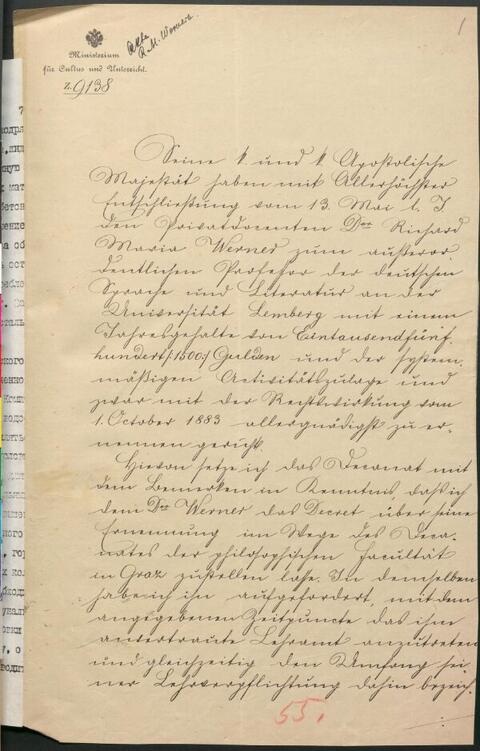 1
Akte
R. M. Werner.
Ministerium
für Cultus und Unterricht.
Z. 9138
Seine k. und k. Apostolische
Majestät haben mit Allerhöchster
Entschließung vom 13. Mai l. J.
den Privatdocenten Dor Richard
Maria Werner zum außeror-
dentlichen Professor der deutschen
Sprache und Literatur an der
Universität Lemberg mit einem
Jahresgehalte von Eintausendfünf-
hundert /:1500:/ Gulden und der system-
mäßigen Activitätszulage und
zwar mit der Rechtswirkung vom
1. October 1883 allergnädigst zu er-
nennen geruht.
Hievon setze ich das Decanat mit
dem Bemerken in Kenntnis, daß ich
dem Dor Werner das Decret über seine
Ernennung im Wege des Deca-
nates der philosophischen Facultät
in Graz zustellen lasse. In demselben
habe ich ihn aufgefordert, mit dem
angegebenen Zeitpuncte das ihm
anvertraute Lehramt anzutreten
und gleichzeitig den Umfang sei-
ner Lehrverpflichtung dahin bezeich-
55.